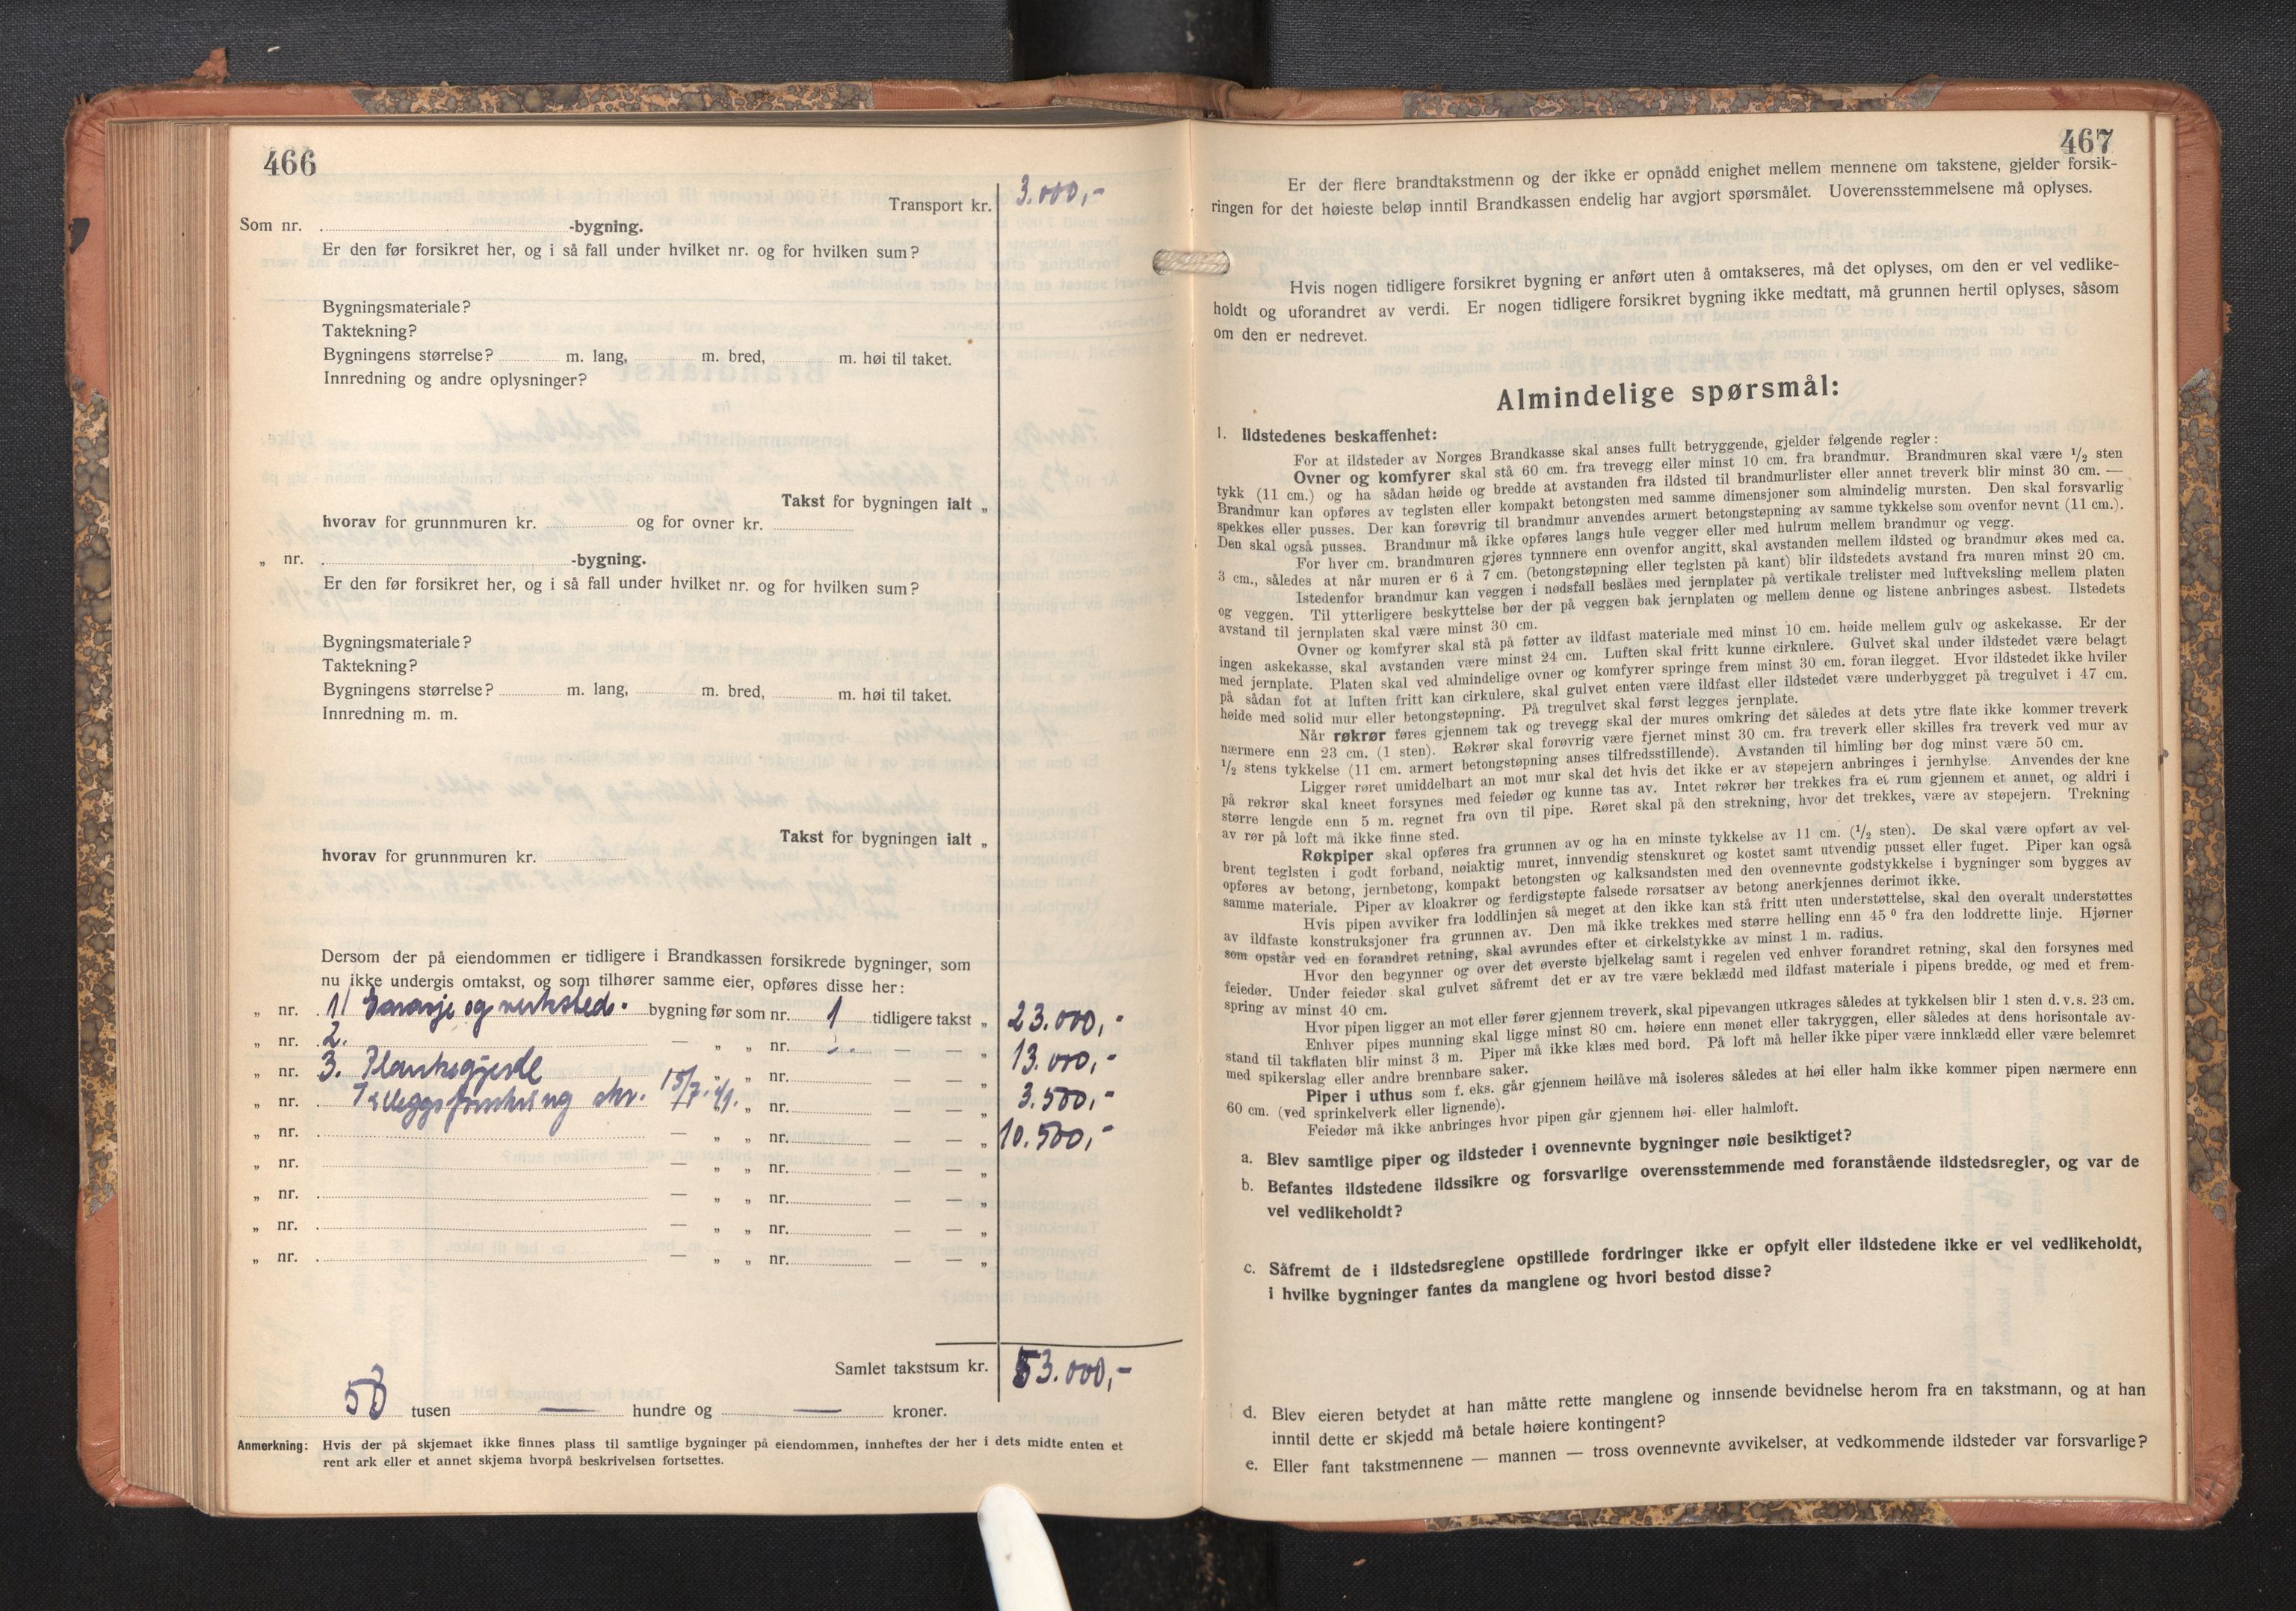 466
Transport kr. 3.000,-
Som nr. -bygning.
Er den før forsikret her, og i så fall under hvilket nr. og for hvilken sum?
Bygningsmateriale?
Taktekning?
Bygningens størrelse? m. lang, m. bred, m. høi til taket.
Innredning og andre oplysninger?
Takst for bygningen ialt „
hvorav for grunnmuren kr. og for ovner kr.
„ nr. -bygning.
Er den før forsikret her, og i så fall under hvilket nr. og for hvilken sum?
Bygningsmateriale?
Taktekning?
Bygningens størrelse? m. lang, m. bred, m. høi til taket.
Innredning m. m.
Takst for bygningen ialt „
hvorav for grunnmuren kr.
Dersom der på eiendommen er tidligere i Brandkassen forsikrede bygninger, som
nu ikke undergis omtakst, og som tilhører samme eier, opføres disse her:
„ nr. 1/ Garasje og verksted. bygning før som nr. 1 tidligere takst „ 23.000,-
„ nr. 2. — „ „ nr. 2. — — „ 13.000,-
„ nr. 3. Plankegjerde „ nr. — — „ 3.500,-
„ nr. Tilleggsforsikring skr. 15/7-41. „ nr. — — „ 10.500,-
„ nr. — „ „ nr. — — „
„ nr. — „ „ nr. — — „
„ nr. — „ „ nr. — — „
„ nr. — „ „ nr. — — „
„ nr. — „ „ nr. — — „
Samlet takstsum kr. 53.000,-
53 tusen — hundre og — kroner.
Anmerkning: Hvis der på skjemaet ikke finnes plass til samtlige bygninger på eiendommen, innheftes der her i dets midte enten et
rent ark eller et annet skjema hvorpå beskrivelsen fortsettes.
467
Er der flere brandtakstmenn og der ikke er opnådd enighet mellem mennene om takstene, gjelder forsik-
ringen for det høieste beløp inntil Brandkassen endelig har avgjort spørsmålet. Uoverensstemmelsene må oplyses.
Hvis nogen tidligere forsikret bygning er anført uten å omtakseres, må det oplyses, om den er vel vedlike-
holdt og uforandret av verdi. Er nogen tidligere forsikret bygning ikke medtatt, må grunnen hertil oplyses, såsom
om den er nedrevet.
Almindelige spørsmål:
1. Ildstedenes beskaffenhet:
For at ildsteder av Norges Brandkasse skal anses fullt betryggende, gjelder følgende regler:
Ovner og komfyrer skal stå 60 cm. fra trevegg eller minst 10 cm. fra brandmur. Brandmuren skal være 1/2 sten
tykk (11 cm.) og ha sådan høide og bredde at avstanden fra ildsted til brandmurlister eller annet treverk blir minst 30 cm. —
Brandmur kan opføres av teglsten eller kompakt betongsten med samme dimensjoner som almindelig mursten. Den skal forsvarlig
spekkes eller pusses. Der kan forøvrig til brandmur anvendes armert betongstøpning av samme tykkelse som ovenfor nevnt (11 cm.).
Den skal også pusses. Brandmur må ikke opføres langs hule vegger eller med hulrum mellem brandmur og vegg.
For hver cm. brandmuren gjøres tynnnere enn ovenfor angitt, skal avstanden mellem ildsted og brandmur økes med ca.
3 cm., således at når muren er 6 à 7 cm. (betongstøpning eller teglsten på kant) blir ildstedets avstand fra muren minst 20 cm.
Istedenfor brandmur kan veggen i nødsfall beslåes med jernplater på vertikale trelister med luftveksling mellem platen
og veggen. Til ytterligere beskyttelse bør der på veggen bak jernplaten og mellem denne og listene anbringes asbest. Ilstedets
avstand til jernplaten skal være minst 30 cm.
Ovner og komfyrer skal stå på føtter av ildfast materiale med minst 10 cm. høide mellem gulv og askekasse. Er der
ingen askekasse, skal avstanden være minst 24 cm. Luften skal fritt kunne cirkulere. Gulvet skal under ildstedet være belagt
med jernplate. Platen skal ved almindelige ovner og komfyrer springe frem minst 30 cm. foran ilegget. Hvor ildstedet ikke hviler
på sådan fot at luften fritt kan cirkulere, skal gulvet enten være ildfast eller ildstedet være underbygget på tregulvet i 47 cm.
høide med solid mur eller betongstøpning. På tregulvet skal først legges jernplate.
Når røkrør føres gjennem tak og trevegg skal der mures omkring det således at dets ytre flate ikke kommer treverk
nærmere enn 23 cm. (1 sten). Røkrør skal forøvrig være fjernet minst 30 cm. fra treverk eller skilles fra treverk ved mur av
1/2 stens tykkelse (11 cm. armert betongstøpning anses tilfredsstillende). Avstanden til himling bør dog minst være 50 cm.
Ligger røret umiddelbart an mot mur skal det hvis det ikke er av støpejern anbringes i jernhylse. Anvendes der kne
på røkrør skal kneet forsynes med feiedør og kunne tas av. Intet røkrør bør trekkes fra et rum gjennem et annet, og aldri i
større lengde enn 5 m. regnet fra ovn til pipe. Røret skal på den strekning, hvor det trekkes, være av støpejern. Trekning
av rør på loft må ikke finne sted.
Røkpiper skal opføres fra grunnen av og ha en minste tykkelse av 11 cm. (1/2 sten). De skal være opført av vel-
brent teglsten i godt forband, nøiaktig muret, innvendig stenskuret og kostet samt utvendig pusset eller fuget. Piper kan også
opføres av betong, jernbetong, kompakt betongsten og kalksandsten med den ovennevnte godstykkelse i bygninger som bygges av
samme materiale. Piper av kloakrør og ferdigstøpte falsede rørsatser av betong anerkjennes derimot ikke.
Hvis pipen avviker fra loddlinjen så meget at den ikke kan stå fritt uten understøttelse, skal den overalt understøttes
av ildfaste konstruksjoner fra grunnen av. Den må ikke trekkes med større helling enn 45° fra den loddrette linje. Hjørner
som opstår ved en forandret retning, skal avrundes efter et cirkelstykke av minst 1 m. radius.
Hvor den begynner og over det øverste bjelkelag samt i regelen ved enhver forandret retning, skal den forsynes med
feiedør. Under feiedør skal gulvet såfremt det er av tre være beklædd med ildfast materiale i pipens bredde, og med et frem-
spring av minst 40 cm.
Hvor pipen ligger an mot eller fører gjennem treverk, skal pipevangen utkrages således at tykkelsen blir 1 sten d. v. s. 23 cm.
Enhver pipes munning skal ligge minst 80 cm. høiere enn mønet eller takryggen, eller således at dens horisontale av-
stand til takflaten blir minst 3 m. Piper må ikke klæs med bord. På loft må heller ikke piper være innklædd eller være belemret
med spikerslag eller andre brennbare saker.
Piper i uthus som f. eks. går gjennem høilåve må isoleres således at høi eller halm ikke kommer pipen nærmere enn
60 cm. (ved sprinkelverk eller lignende).
Feiedør må ikke anbringes hvor pipen går gjennem høi- eller halmloft.
a. Blev samtlige piper og ildsteder i ovennevnte bygninger nøie besiktiget?
b. Befantes ildstedene ildssikre og forsvarlige overensstemmende med foranstående ildstedsregler, og var de
vel vedlikeholdt?
c. Såfremt de i ildstedsreglene opstillede fordringer ikke er opfylt eller ildstedene ikke er vel vedlikeholdt,
i hvilke bygninger fantes da manglene og hvori bestod disse?
d. Blev eieren betydet at han måtte rette manglene og innsende bevidnelse herom fra en takstmann, og at han
inntil dette er skjedd må betale høiere kontingent?
e. Eller fant takstmennene — mannen — tross ovennevnte avvikelser, at vedkommende ildsteder var forsvarlige?